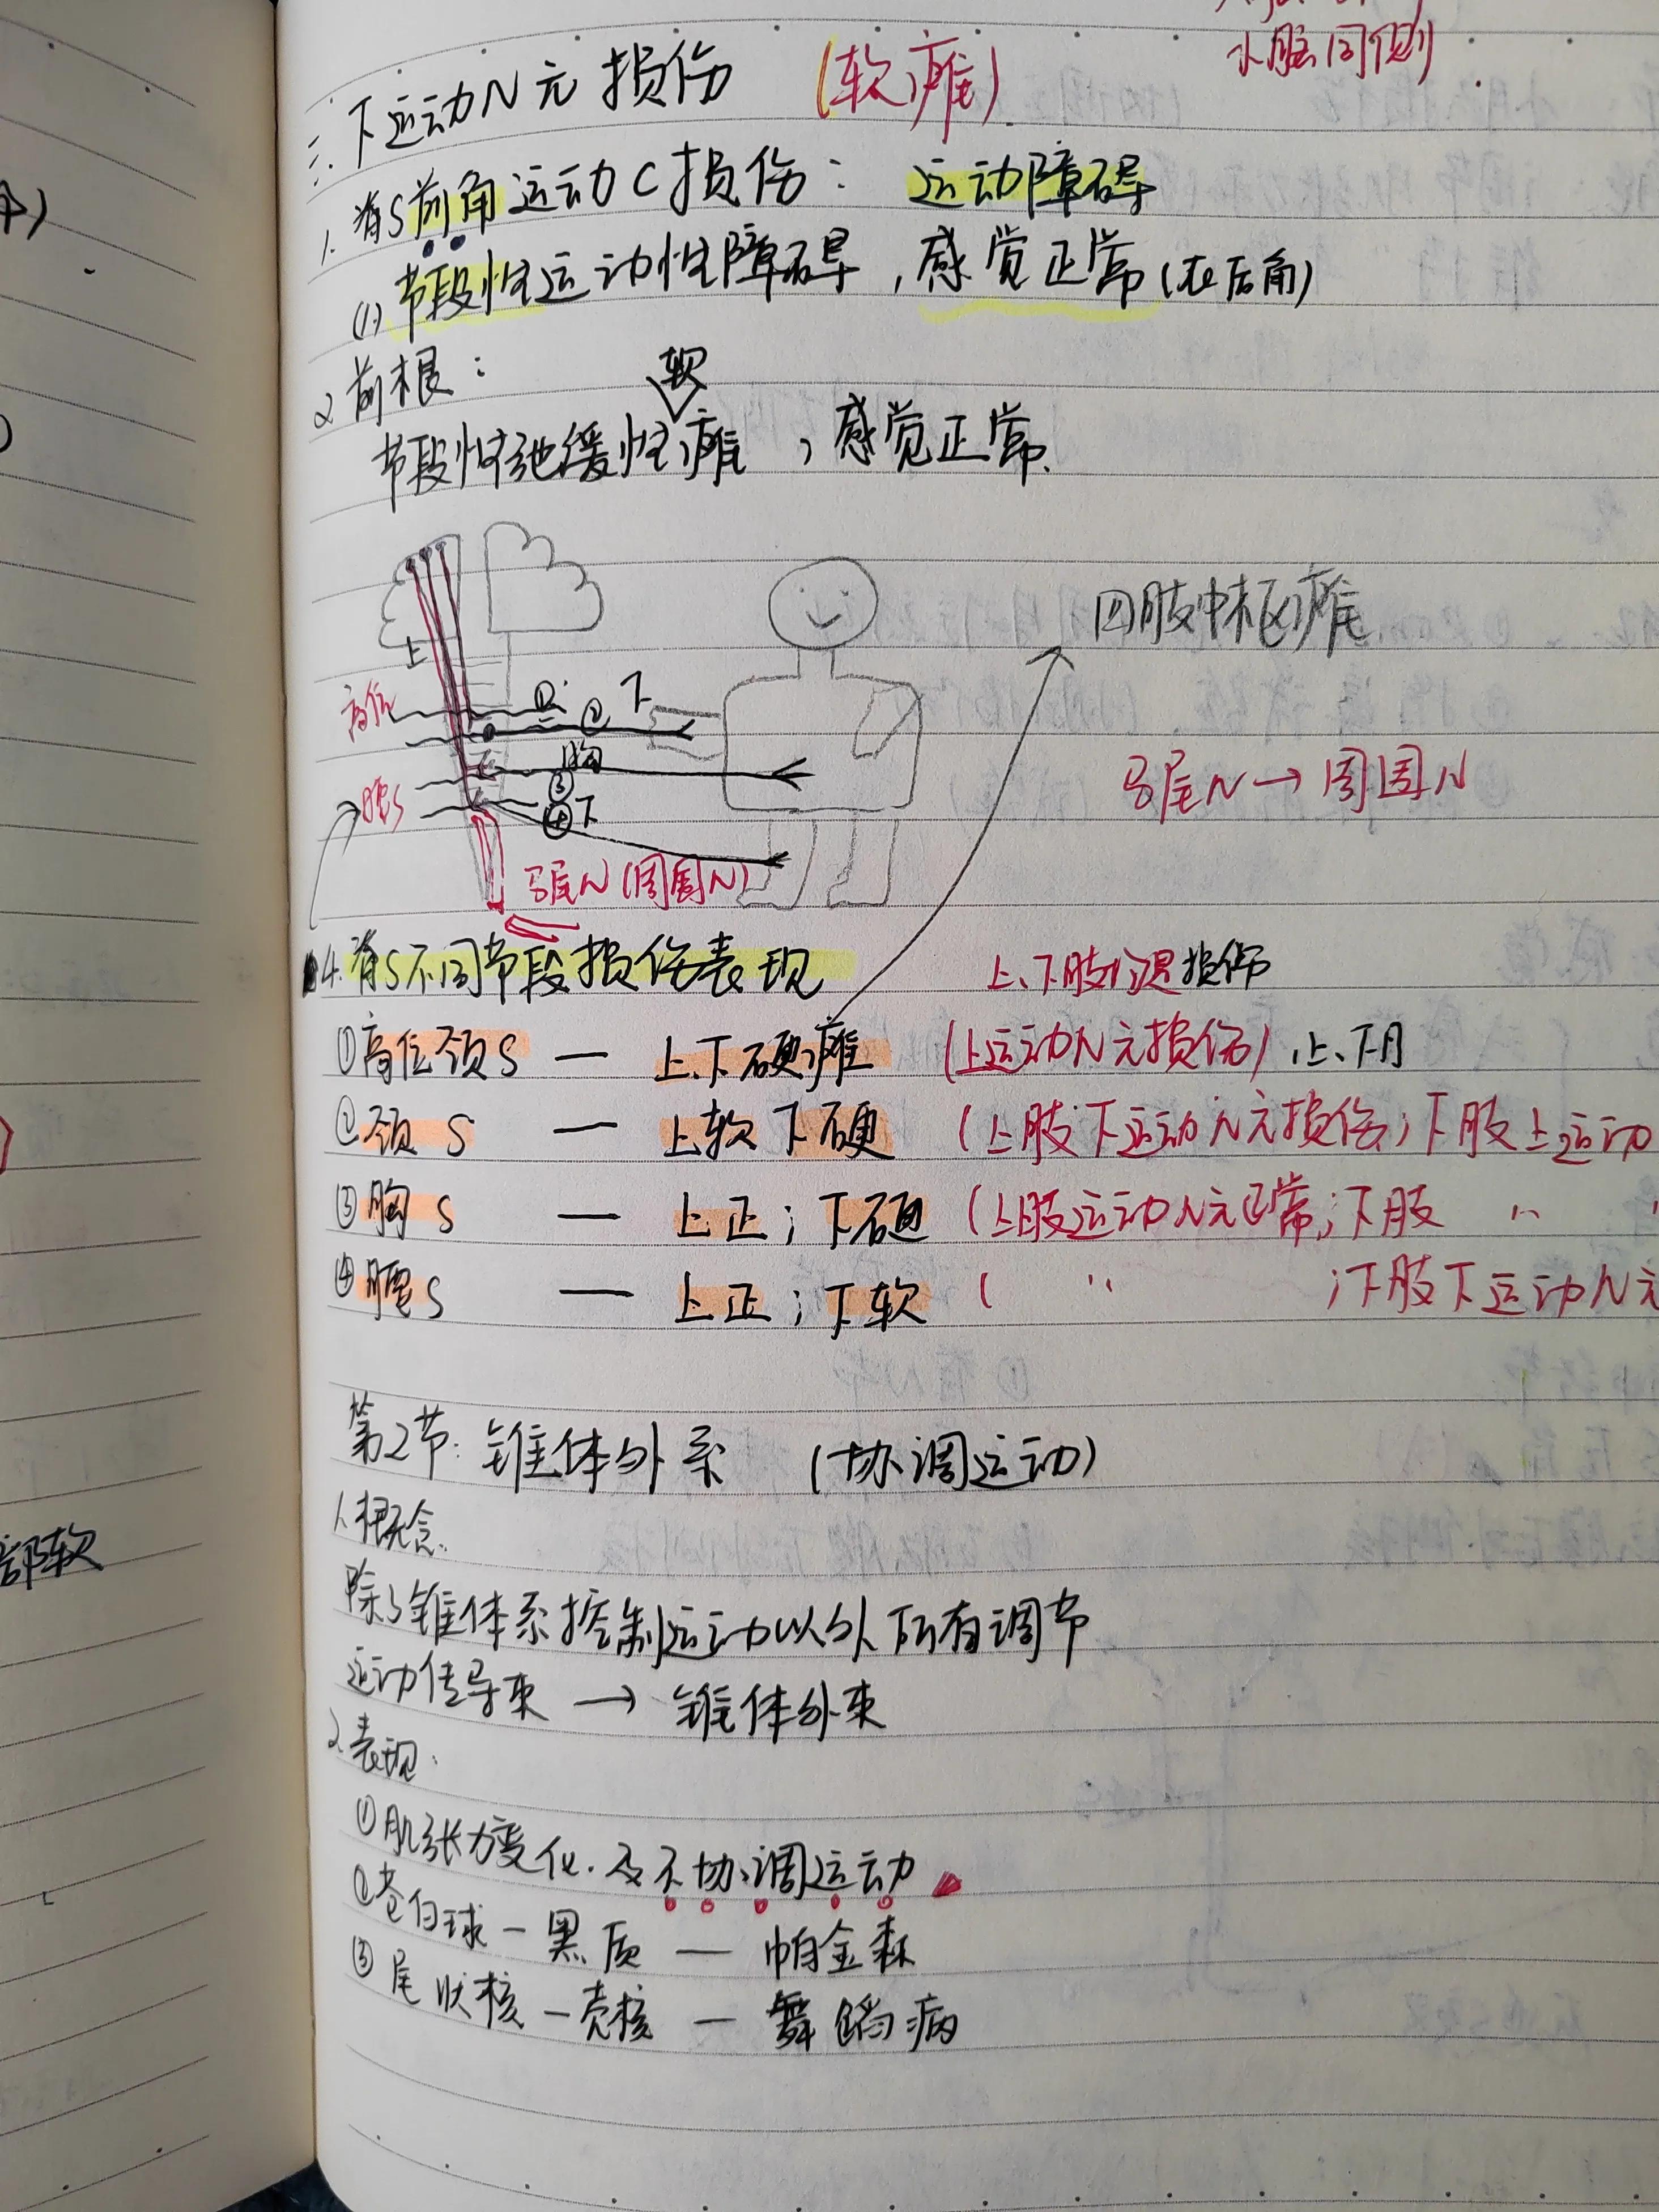 小脑同侧
三.下运动N元损伤 (软瘫)
1.脊S前角运动C损伤: 运动障碍
(1)节段性运动性障碍,感觉正常(在后角)
2前根:
软
节段性弛缓性瘫,感觉正常.
四肢中枢瘫
上
高位
① ② 下
胸
③
腰S
④下
马尾N→周围N
马尾N(周围N)
4.脊S不同节段损伤表现
上、下肢 损伤
①高位颈S — 上.下硬瘫 (上运动N元损伤),上、下月
②颈S — 上软下硬 (上肢下运动N元损伤;下肢上运动
③胸S — 上正;下硬 (上肢运动N元正常;下肢 〃
④腰S — 上正;下软 ( 〃 ;下肢下运动N元
第2节:锥体外系 (协调运动)
1.概念.
除了锥体系控制运动以外所有调节
运动传导束 → 锥体外束
2.表现:
①肌张力变化.及不协调运动
②苍白球-黑质 — 帕金森
③尾状核-壳核 — 舞蹈病
部软